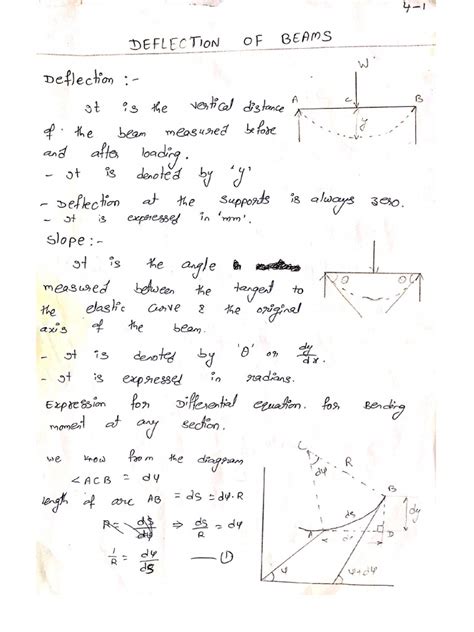 4-1
DEFLECTION OF BEAMS
Deflection :-
It is the vertical distance
of the beam measured before
and after loading.
- It is denoted by 'y'
- Deflection at the supports is always zero.
- It is expressed in 'mm'.
W
A C B
y
Slope :-
It is the angle
measured between the tangent to
the elastic curve & the original
axis of the beam.
θ θ
- It is denoted by 'θ' or dy/dx.
- It is expressed in radians.
Expression for Differential equation for Bending
moment at any section.
we know from the diagram
∠ACB = dψ
length of arc AB = ds = dψ.R
R = ds/dψ ⇒ ds/R = dψ
1/R = dψ/ds — ①
C
dψ
R
B
ds
dy
A
D
ψ
ψ+dψ